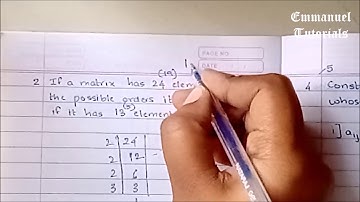 Emmanuel
Tutorials
PAGE NO
DATE
5
(18)
2 If a matrix has 24 elem
the possible orders it
(5)
if it has 13 element
4 Const
whos
i] aij
2 24
2 12
2 6
3 3